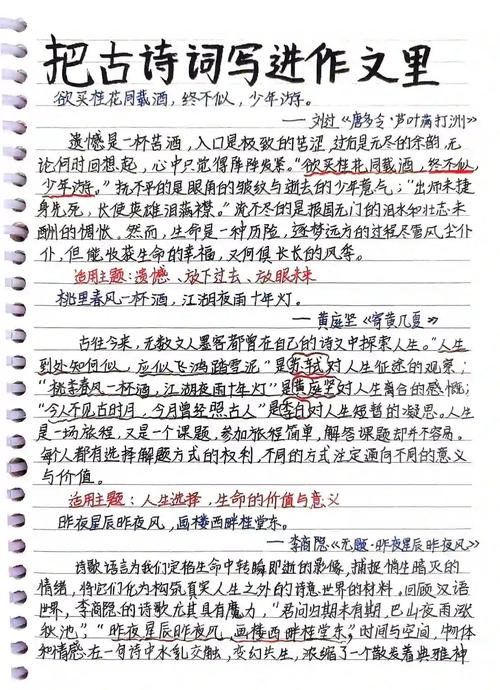 把古诗词写进作文里
欲买桂花同载酒，终不似，少年游。
——刘过《唐多令·芦叶满汀洲》
遗憾是一杯苦酒，入口是极致的苦涩，过后是无尽的余韵，无
论何时回想起，心中只觉得阵阵发紧。“欲买桂花同载酒，终不似
少年游。”抚不平的是眼角的皱纹与逝去的少年意气；“出师未捷
身先死，长使英雄泪满襟。”流不尽的是报国无门的泪水和壮志未
酬的惆怅。然而，生命是一种历险，逐梦远方的过程尽管风尘仆
仆，但能收获生命的幸福，又何惧长长的风筝。
适用主题：遗憾、放下过去、放眼未来
桃李春风一杯酒，江湖夜雨十年灯。
——黄庭坚《寄黄几复》
古往今来，无数文人墨客都曾在自己的诗文中探索人生。“人生
到处知何似，应似飞鸿踏雪泥”是苏轼对人生征途的观察；
“桃李春风一杯酒，江湖夜雨十年灯”是黄庭坚对人生离合的感慨；
“今人不见古时月，今月曾经照古人”是李白对人生短暂的凝思。人生
是一场旅程，又是一个课题，参加旅程简单，解答课题却并不容易。
每个人都有选择解题方式的权利，不同的方式注定通向不同的意义
与价值。
适用主题：人生选择，生命的价值与意义
昨夜星辰昨夜风，画楼西畔桂堂东。
——李商隐《无题·昨夜星辰昨夜风》
诗歌语言为我们定格生命中转瞬即逝的影像，捕捉悄生暗灭的
情绪，将它们化为构筑真实人生之外的诗意世界的材料。回顾汉语
世界，李商隐的诗歌尤其具有魔力，“君问归期未有期，巴山夜雨涨
秋池”，“昨夜星辰昨夜风，画楼西畔桂堂东”，时间与空间，物体
和情感在一句诗中水乳交融，变幻共生，浓缩了一个散发着典雅神